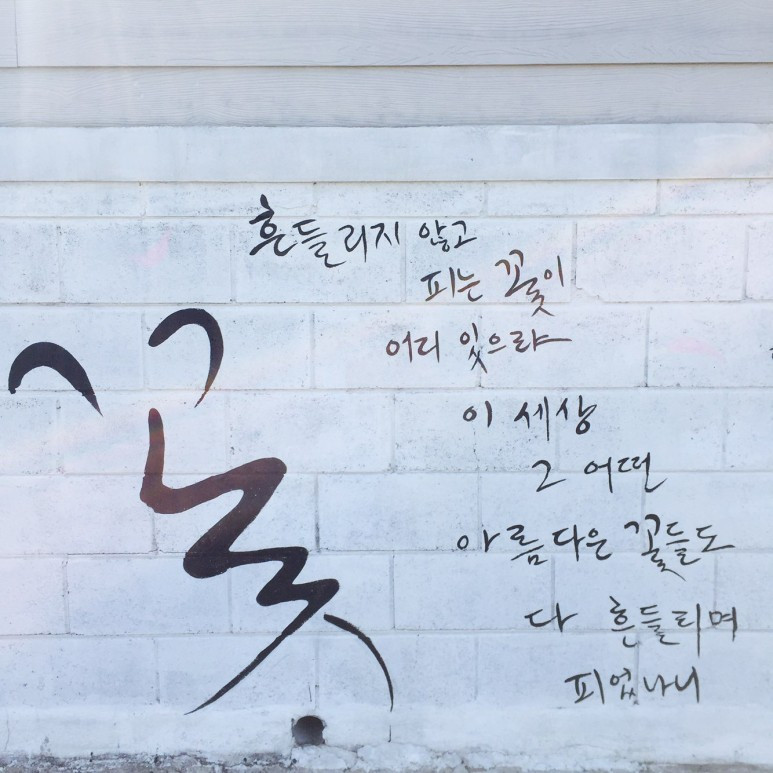 꽃
흔들리지 않고
피는 꽃이
어디 있으랴
이 세상
그 어떤
아름다운 꽃들도
다 흔들리며
피었나니